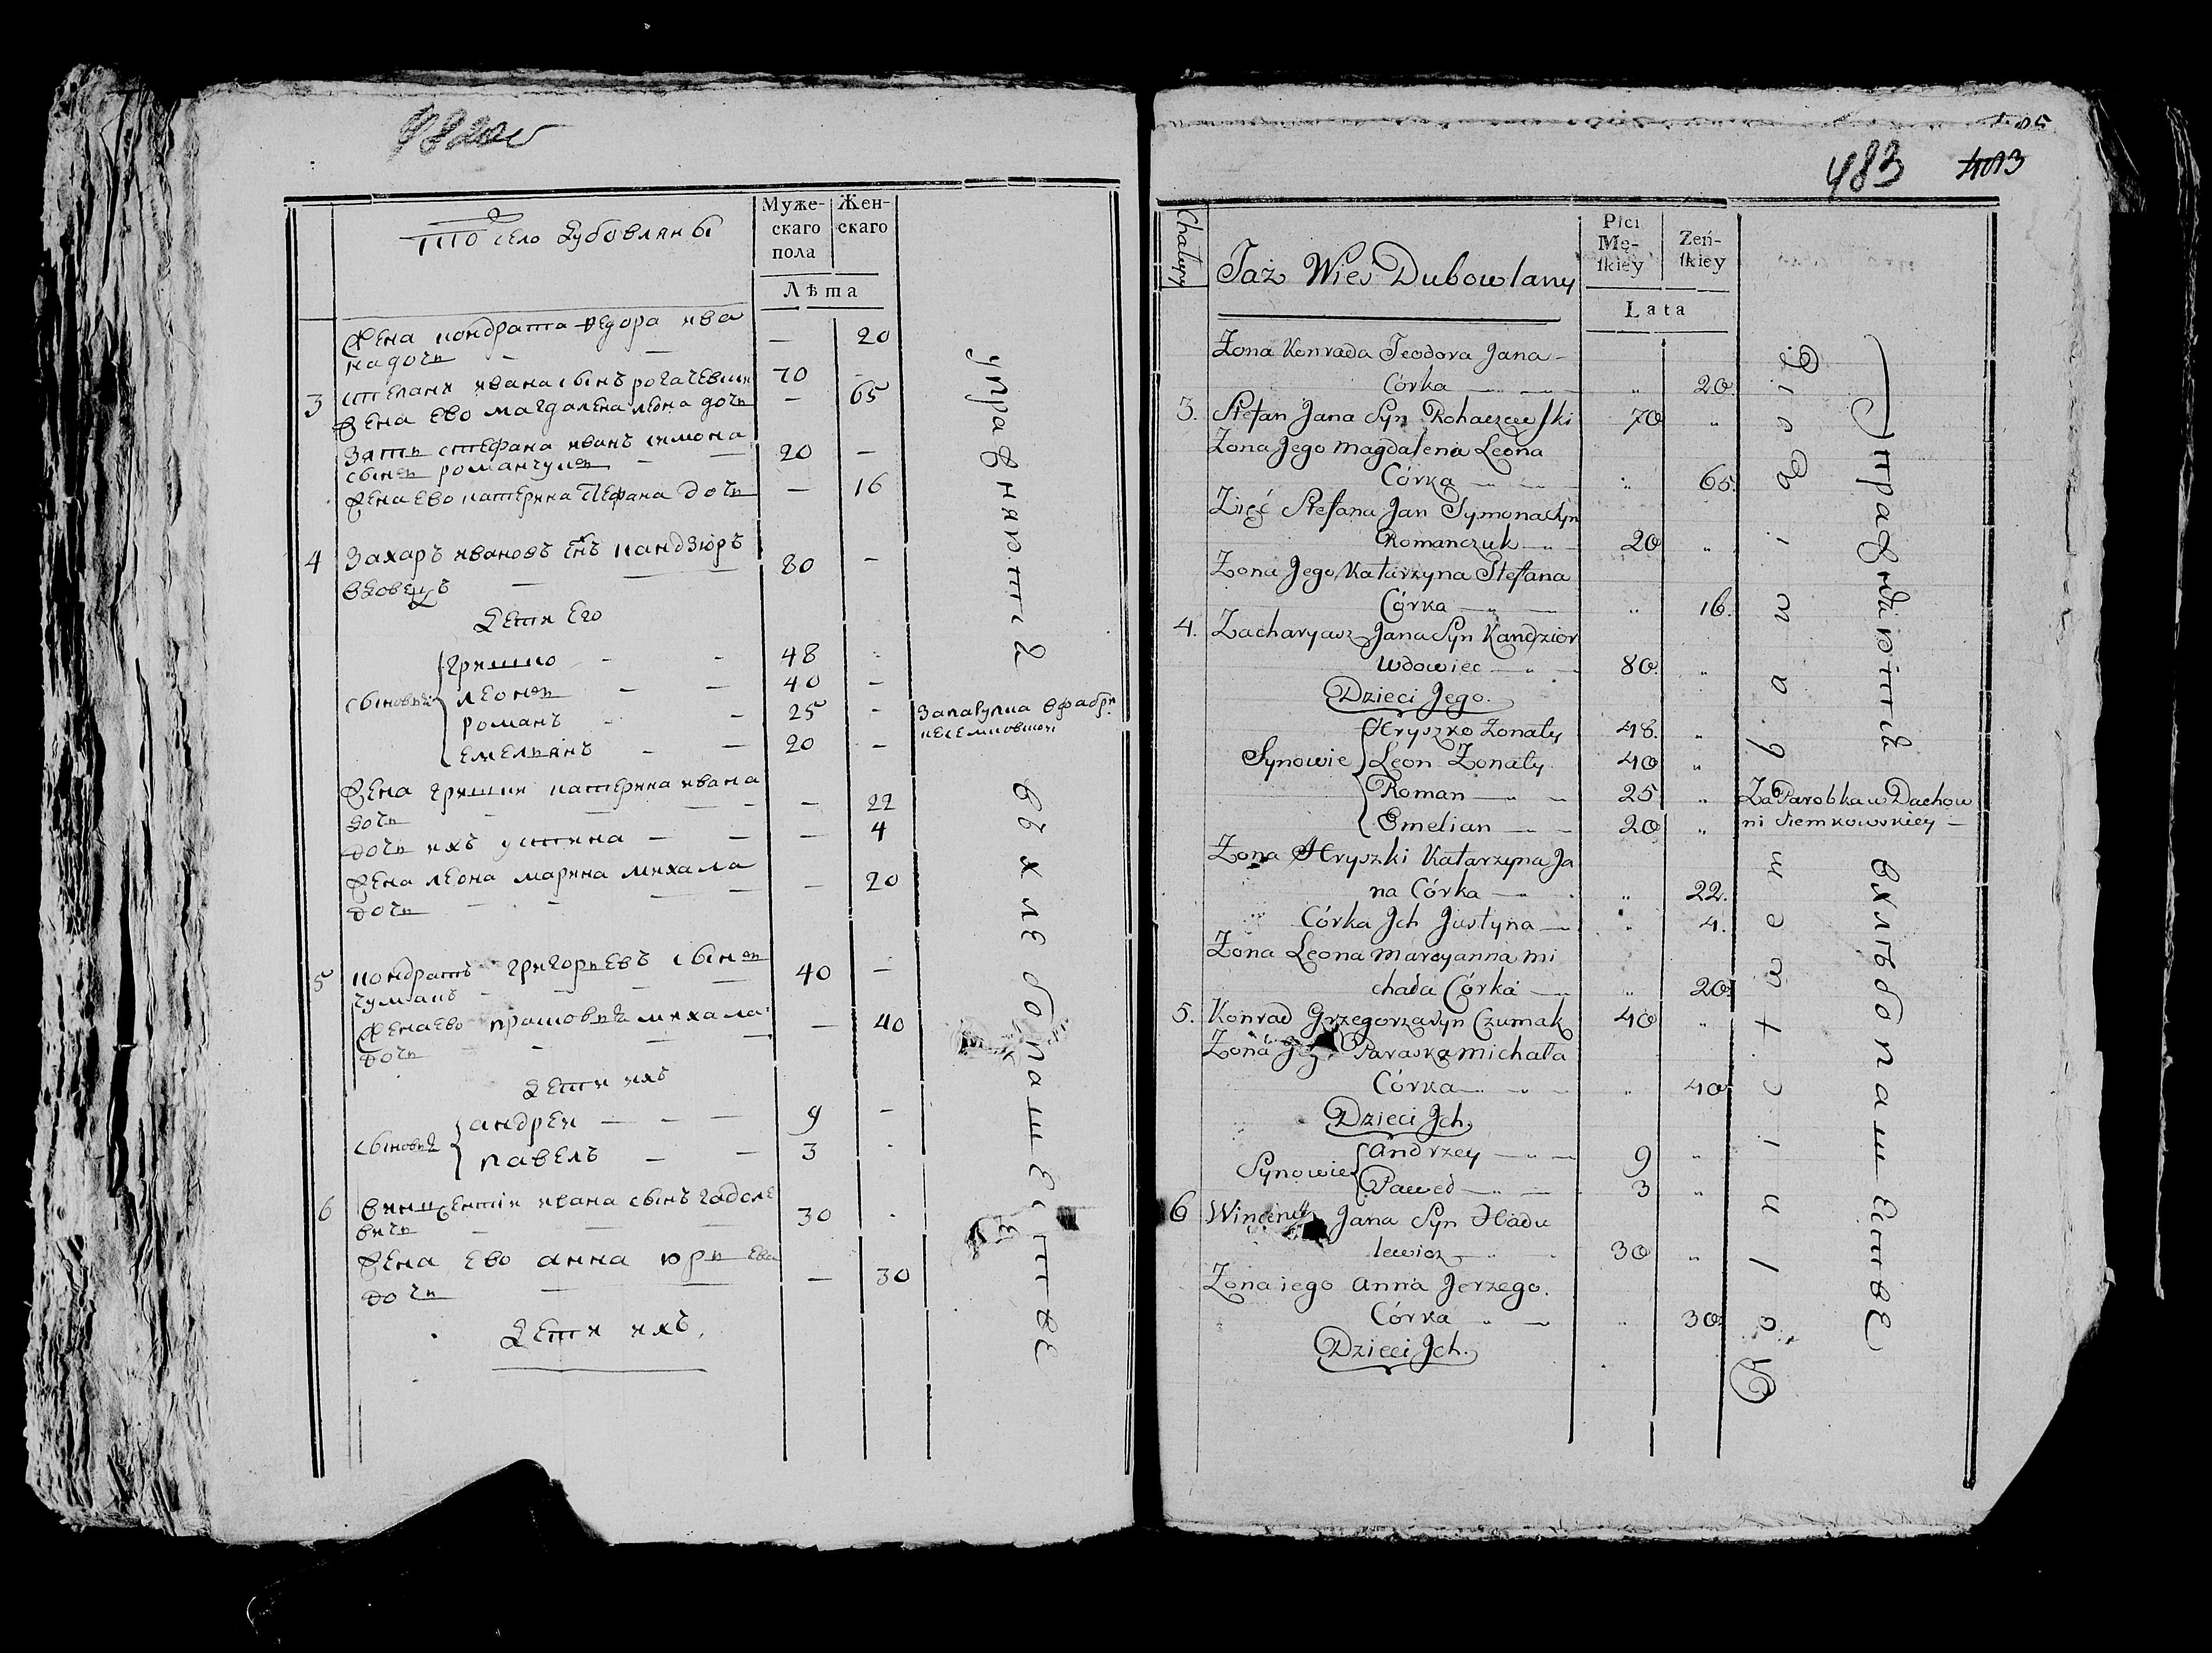 То село Дубовляны
Муже-
скаго
пола
Жен-
скаго
Лѣта
Жена кондрата Федора ива
на дочь — — — 20
3 степанъ ивана сынъ рогачевски 70 -
Жена Ево магдалена леона дочь — 65
Зать стефана иванъ симона
сынъ романчукъ — — 20 —
Жена Ево катерина стефана дочь — 16
4 Захаръ ивановъ снъ кандзюръ
вдовецъ — — 80 —
Дети Его
гришко - - 48 -
сыновя леонъ — — 40 —
романъ - - 25 -
емельянъ - — 20 —
Запарупка в фабри
Жена гришки катерина ивана
дочь - — — 22
дочь ихъ устина — — — 4
Жена леона марина михала
дочь - - — — 20
5 кондратъ григорьевъ сынъ
чумакъ - — — 40 —
Жена Ево михала
дочь - — — — 40
Дети ихъ
андреи — — — 9 —
сыновя
павелъ — — 3 -
6 винцентіи ивана сынъ гадуле
вичъ — — — 30 -
Жена Ево анна юрьева
дочь — — — 30
Дети ихъ.
управняютца въ хлебопашестве
483 4013
Chałupy
Taż Wieś Dubowlany
Płci
Mę-
ſkiey
Żeń-
ſkiey
Lata
Żona Konrada Teodora Jana -
Córka — „ 20
3. Stefan Jana Syn Rohaczewſki 70 „
Żona Jego Magdalena Leona
Córka — „ 65.
Zięć Stefana Jan Symona Syn
Romanczuk — 20 „
Żona Jego Katarzyna Stefana
Córka — „ 16.
4. Zacharyasz Jana Syn Kandzior
Wdowiec — „ — 80. „
Dzieci Jego.
Hryszko Żonaty 48. „
Synowie Leon Żonaty 40 „
Roman — „ — 25 „
Emelian — „ — 20 „
Za Parobka w Dachow
ni Siemkowskiey —
Żona Hryszki Katarzyna Ja
na Córka — „ 22.
Córka Jch Justyna — „ 4.
Żona Leona Maryanna Mi
chała Córka — „ 20.
5. Konrad Grzegorza Syn Czumak 40 „
Żona Jego Paraska Michała
Córka — „ — „ 40
Dzieci Jch.
Andrzey — „ — 9 „
Synowie
Paweł — „ — 3 „
6 Wincenty Jana Syn Hadu
lewicz — „ 30 „
Żona iego Anna Jerzego.
Córka „ — „ 30.
Dzieci Jch.